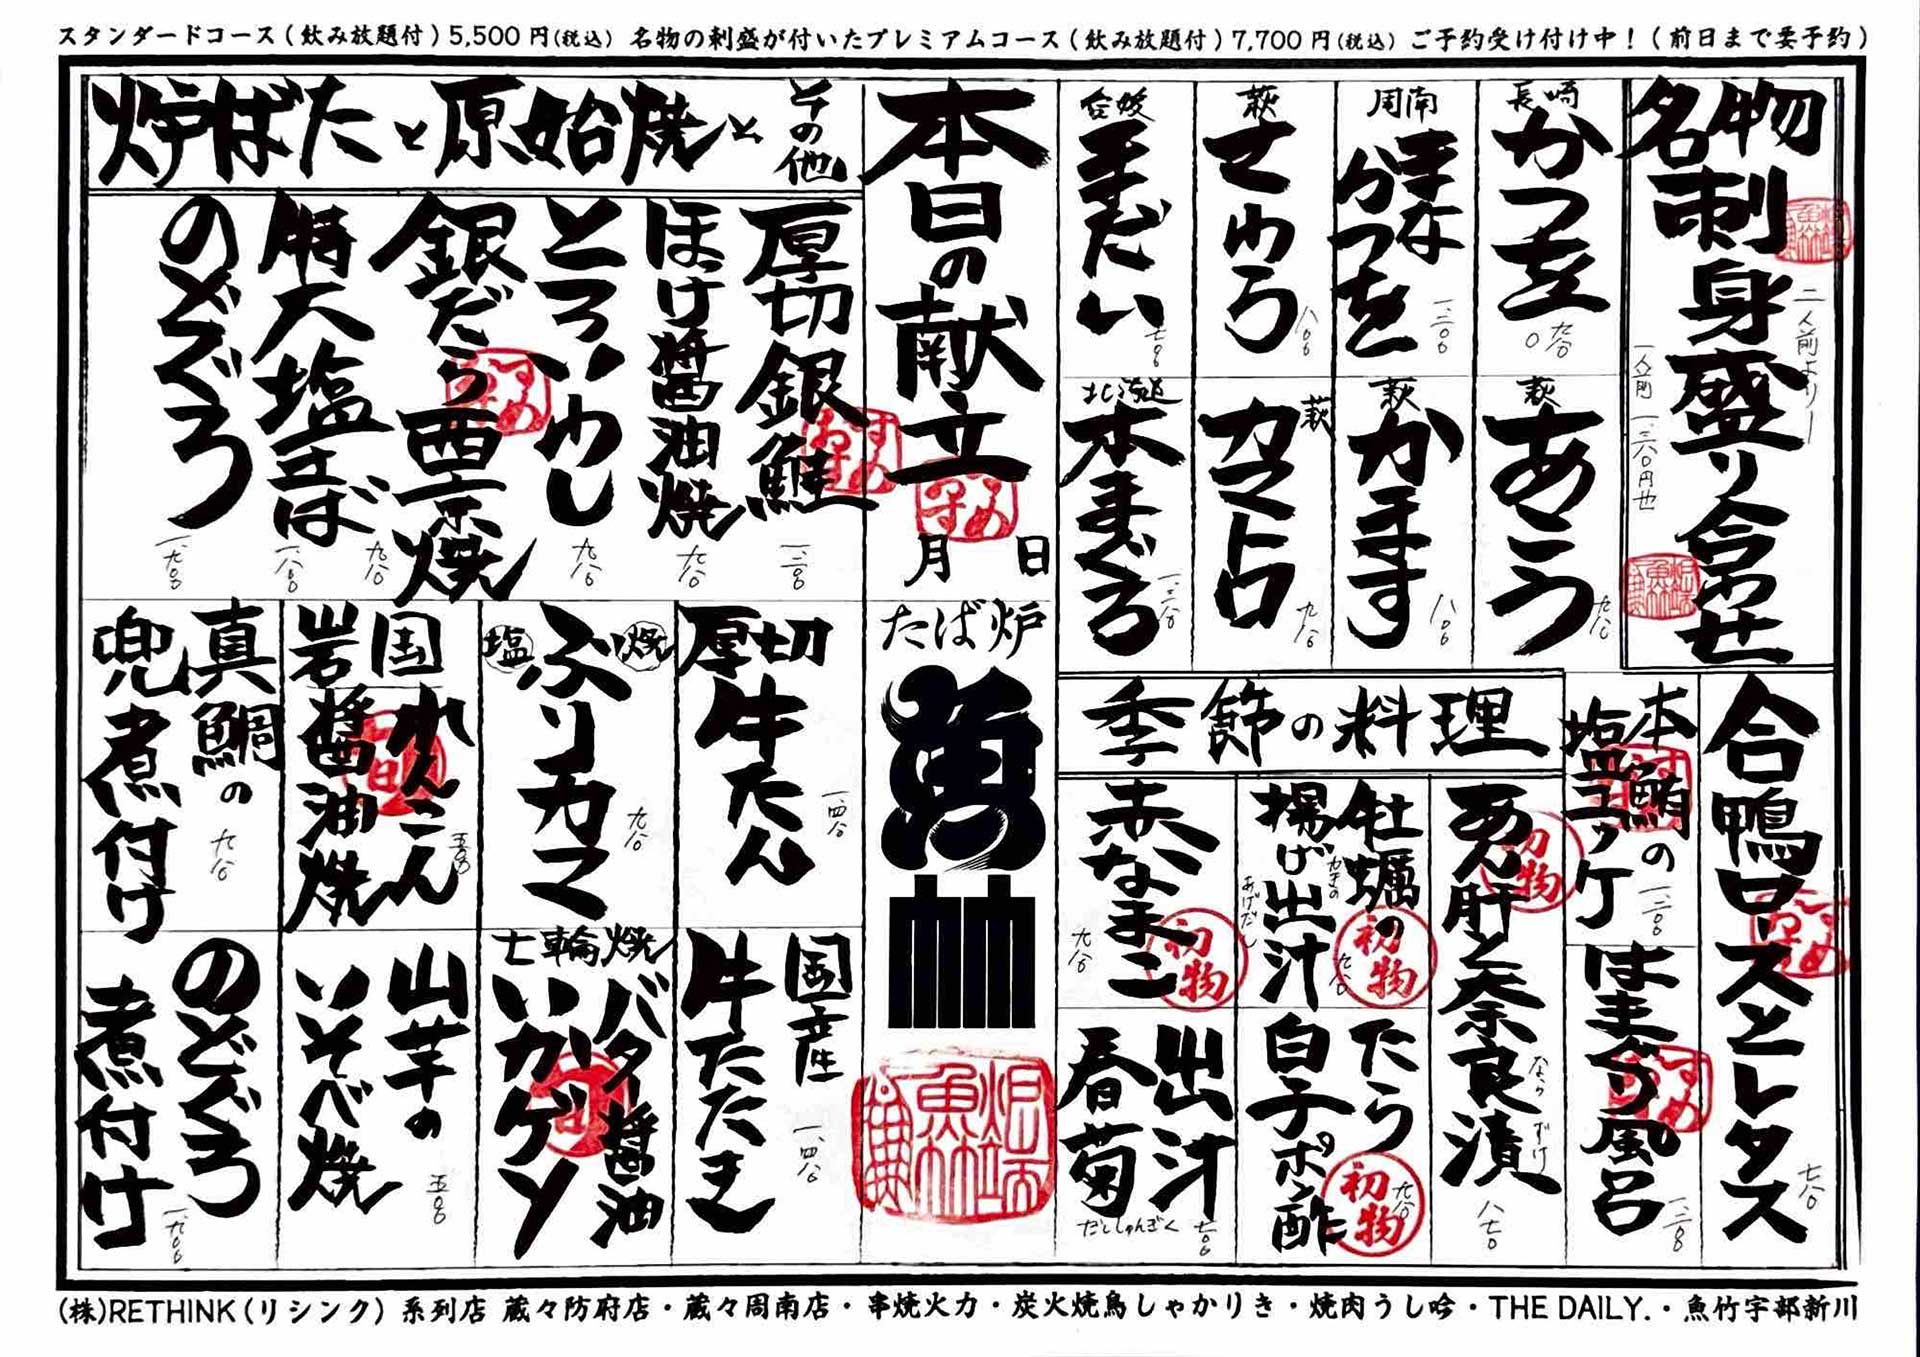 スタンダードコース(飲み放題付)5,500円(税込) 名物の刺盛が付いたプレミアムコース(飲み放題付)7,700円(税込) ご予約受け付け中!(前日まで要予約)
名物刺身盛り合わせ
二人前より
一人前 一、三八〇円也
長崎
かつを
九八〇
周南
生な
らつを
一、三〇〇
萩
さわら
八〇〇
真だい
七〇〇
萩
あこう
九八〇
萩
かます
八〇〇
萩
カマトロ
九八〇
北海道
本まぐろ
一、三八〇
合鴨ロースとレタス
七八〇
本鮪の
塩ユッケ
一、二〇〇
はまぐり風呂
一、二〇〇
季節の料理
あん肝と奈良漬
ならづけ
八七〇
牡蠣の
かきの
揚げ出汁
あげだし
九八〇
たら
白子ポン酢
九八〇
赤なまこ
九八〇
出汁
春菊
だししゅんぎく
七〇〇
初物
初物
初物
初物
本日の献立
月 日
たば炉
魚竹
炉端
魚竹
炉ばたと原始焼と
その他
厚切銀鮭
一、二〇〇
ほっけ醤油焼
九八〇
とろいわし
九八〇
銀だら西京焼
九八〇
特大塩さば
一、八〇〇
のどぐろ
一、九〇〇
厚切
牛たん
一、四八〇
国産
牛たたき
一、四八〇
塩
焼
ぶりカマ
九八〇
七輪焼
バター醤油
いかゲソ
国
れんこん
岩
醤油焼
五〇〇
山芋の
いそべ焼
五〇〇
真鯛の
兜煮付け
九八〇
のどぐろ
煮付け
一、九〇〇
(株)RETHINK(リシンク) 系列店 蔵々防府店・蔵々周南店・串焼火力・炭火焼鳥しゃかりき・焼肉うし吟・THE DAILY.・魚竹宇部新川